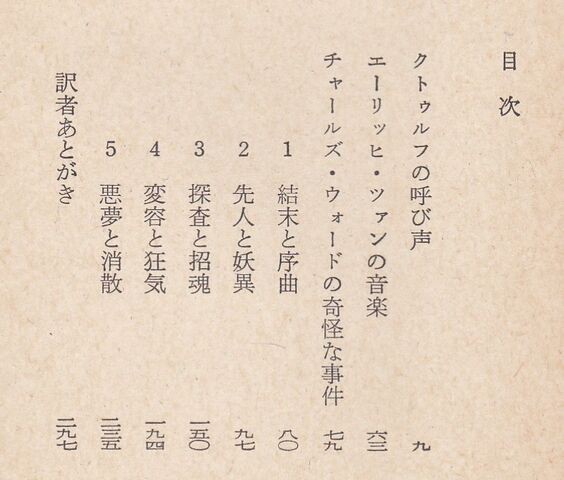 目次
クトゥルフの呼び声 九
エーリッヒ・ツァンの音楽 六三
チャールズ・ウォードの奇怪な事件 七九
1 結末と序曲 八〇
2 先人と妖異 九七
3 探査と招魂 一五〇
4 変容と狂気 一九四
5 悪夢と消散 二三五
訳者あとがき 二九七